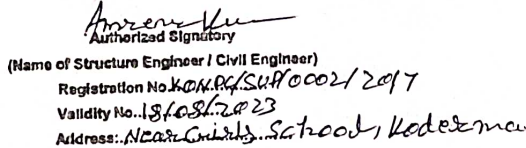 Authorized Signatory
(Name of Structure Engineer / Civil Engineer)
Registration No KON.PG/SUP/0002/2017
Validity No..18/08/2023
Address:.Near Girls School, Koderma